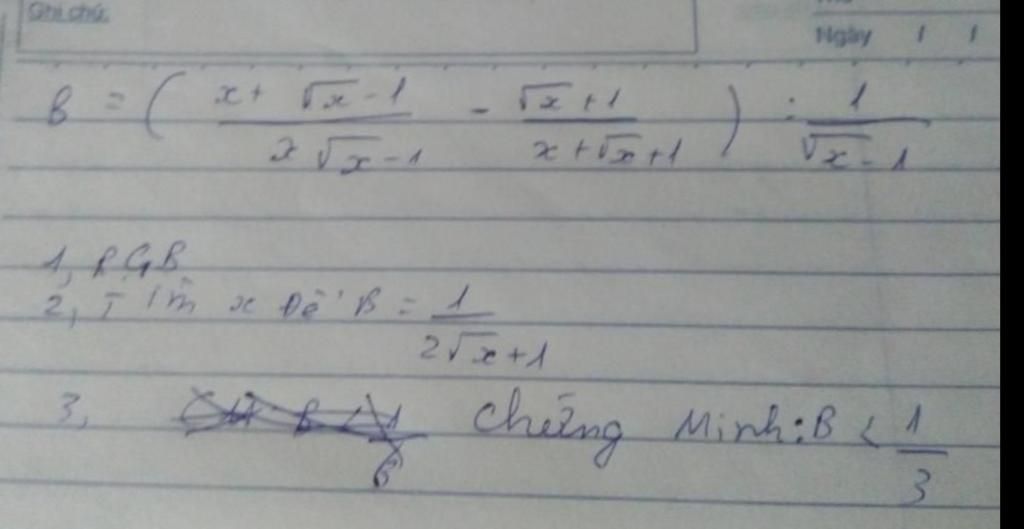 Ghi chú:
Ngày / /
B = ( \frac{x + \sqrt{x} - 1}{x\sqrt{x} - 1} - \frac{\sqrt{x} + 1}{x + \sqrt{x} + 1} ) : \frac{1}{\sqrt{x} - 1}
1, RGB
2, Tìm x Để B = \frac{1}{2\sqrt{x} + 1}
3, Chứng Minh: B < \frac{1}{3}